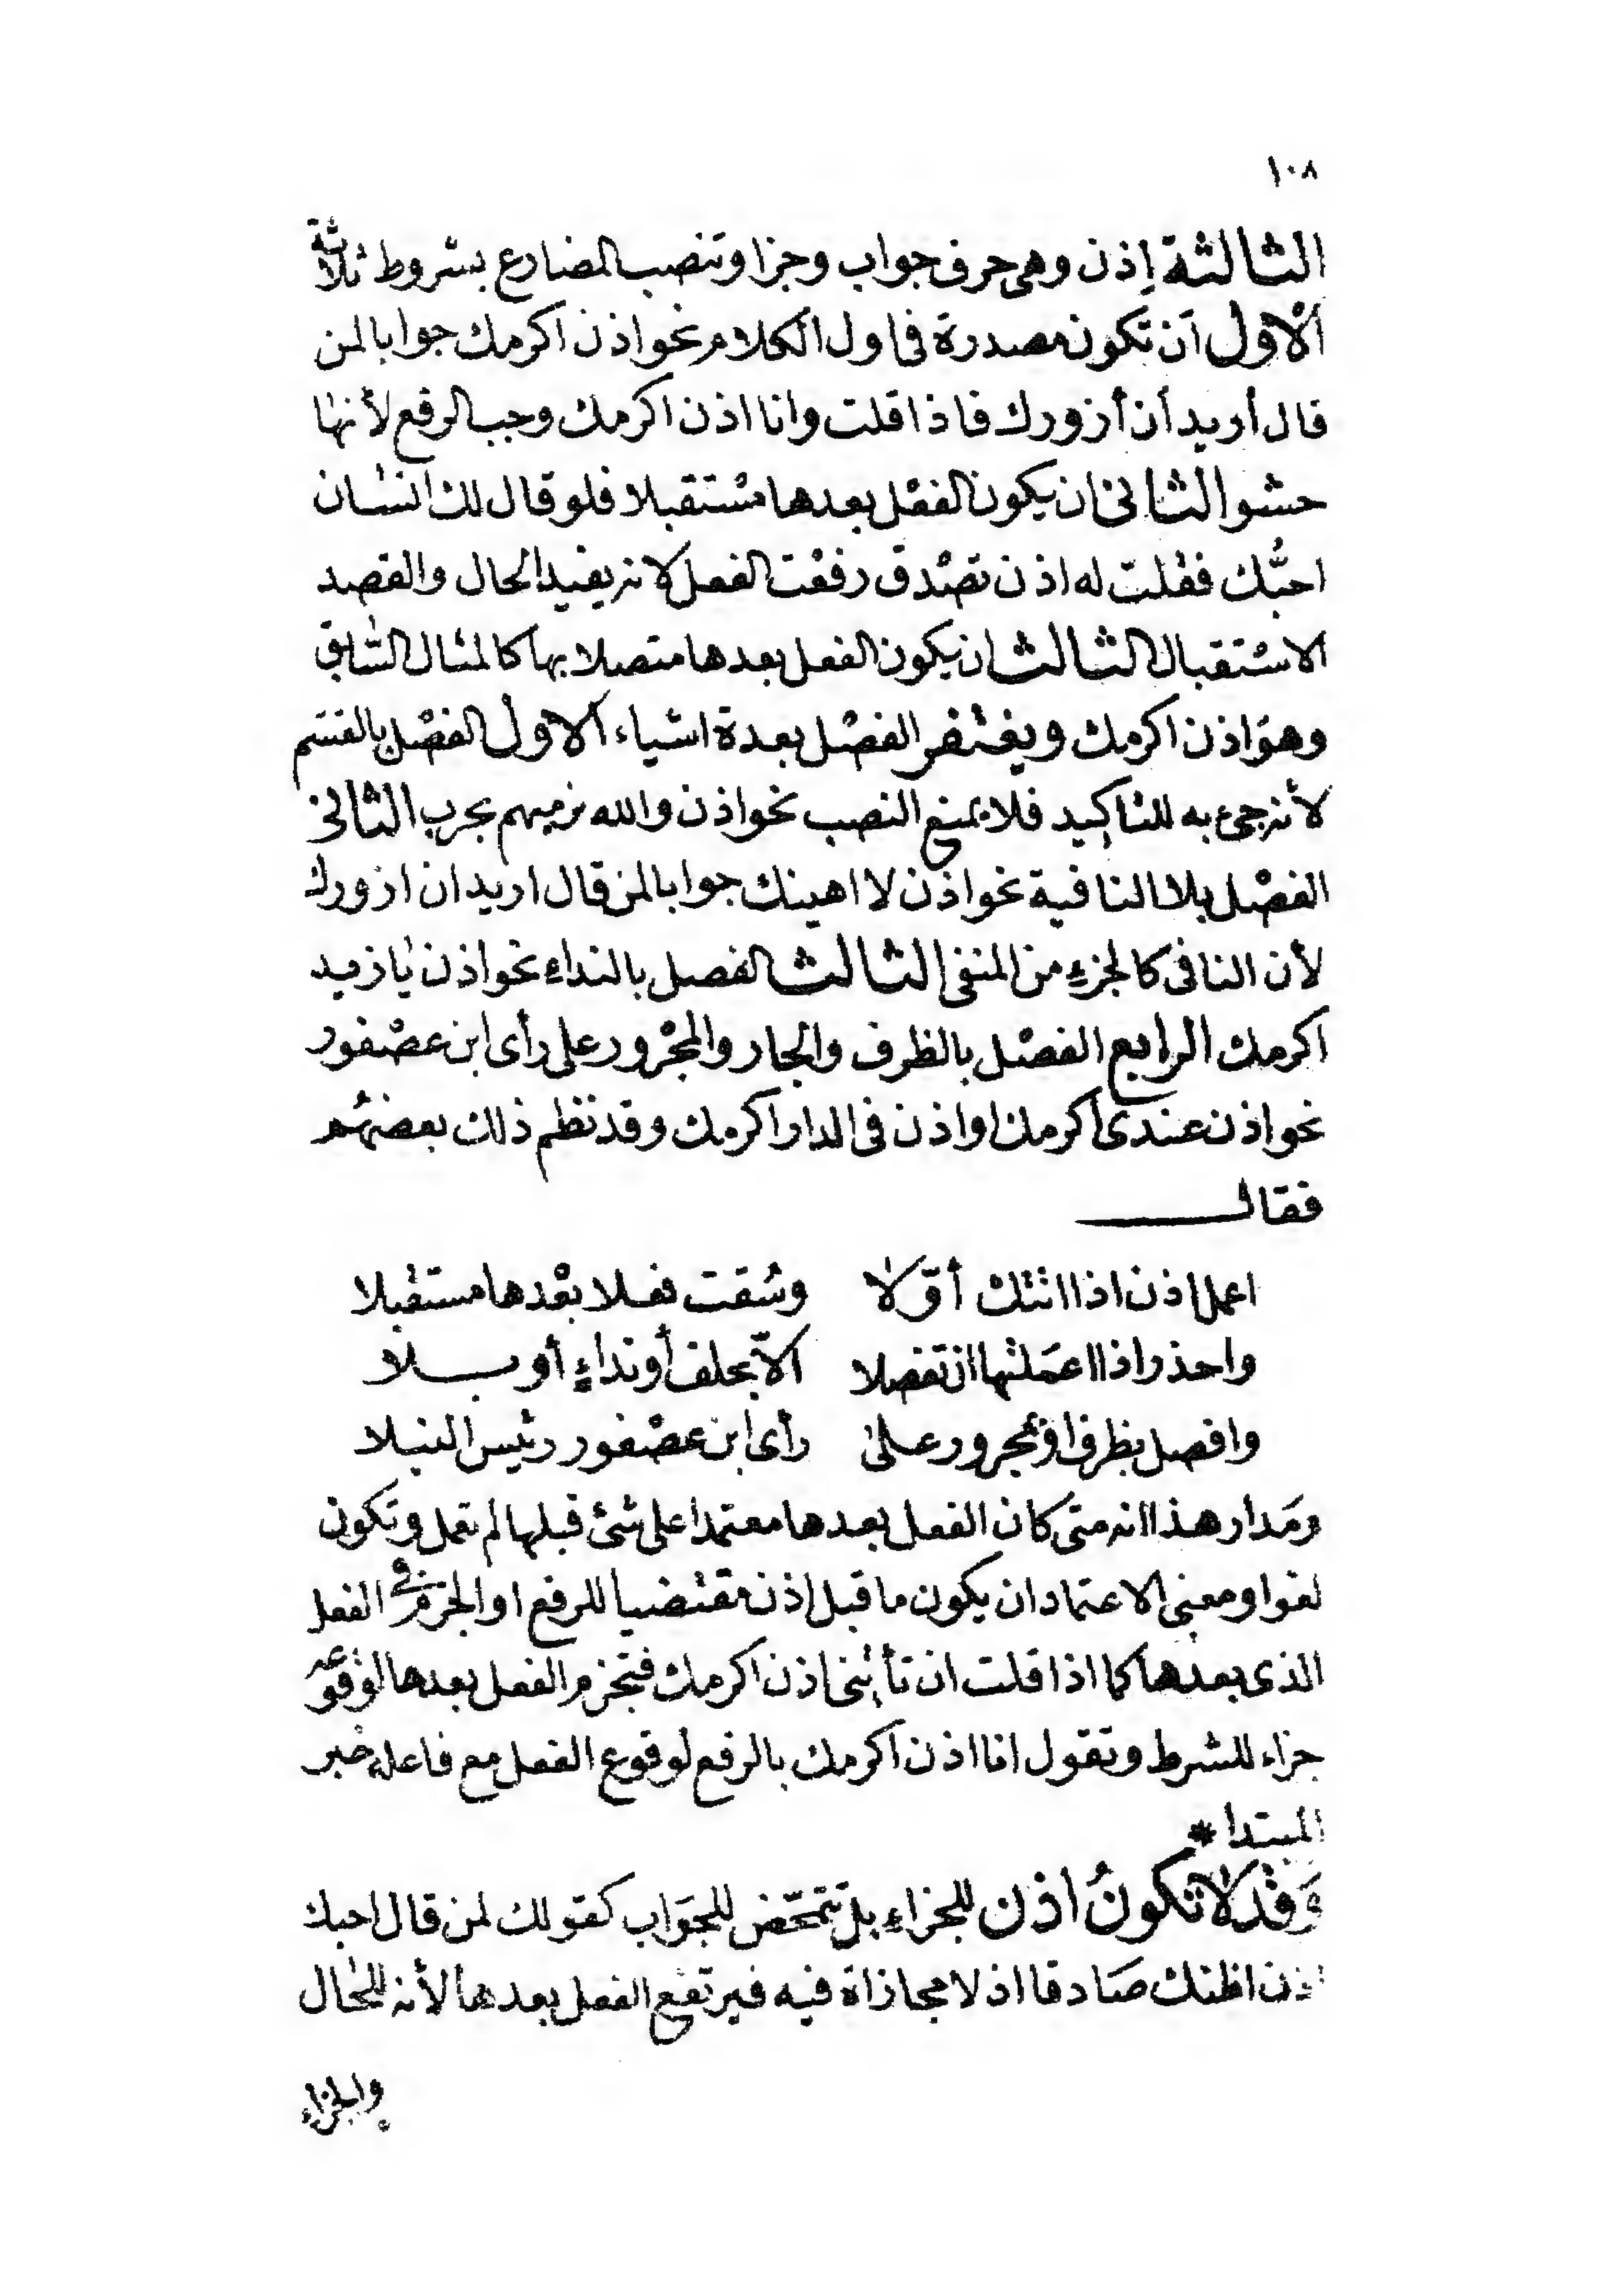 ١٠٨
الثالثة إذن وهى حرف جواب وجزا وتنصب المضارع بشروط ثلاثة
الأول أن تكون مصدرة فى اول الكلام نحو اذن اكرمك جوابا لمن
قال أريد أن أزورك فاذا قلت وانا اذن اكرمك وجب الرفع لأنها
حشو الثانى ان يكون الفعل بعدها مستقبلا فلو قال لك انسان
احبُّك فقلت له اذن تصدق رفعت الفعل لانه يفيد الحال والقصد
الاستقبال الثالث ان يكون الفعل بعدها متصلا بها كالمثال السّابق
وهو اذن اكرمك ويغتفر الفصل بعدة اشياء الاول الفصل بالقسم
لأنه جئ به للتاكيد فلا يمنع النصب نحو اذن والله نرميهم بحرب الثانى
الفصل بلا النافية نحو اذن لا اهينك جوابا لمن قال اريد ان ازورك
لأن النافى كالجزءِ من المنفى الثالث الفصل بالنداءِ نحو اذن يا زيد
اكرمك الرابع الفصل بالظرف والجار والمجرور على رأى ابن عصفور
نحو اذن عندى أكرمك او اذن فى الدار اكرمك وقد نظم ذلك بعضهم
فقال
اعمل اذن اذا اتتك أوّلا وسُقت فعلا بعدها مستقبلا
واحذر اذا اعملتها ان تفصلا الاّ بحلف أو نداءٍ أو بلا
وافصل بظرف او بمجرور على رأى ابن عصفور رئيس النبلا
ومَدار هذا انه متى كان الفعل بعدها معتمدا على شئ قبلها لم تعمل وتكون
لغوا ومعنى الاعتماد ان يكون ما قبل اذن مقتضيا للرفع او الجزم فى الفعل
الذى بعدها كما اذا قلت ان تأتنى اذن اكرمك فتجزم الفعل بعدها لوقوعه
جزاء للشرط وتقول انا اذن اكرمك بالرفع لوقوع الفعل مع فاعله خبر
المبتدا *
وَقد لا تكونُ اذن للجزاءِ بل تتمحّض للجوَاب كقولك لمن قال احبك
اذن اظنك صَادقا اذ لا مجازاة فيه فيرتفع الفعل بعدها لأنه للحال
والجزاء